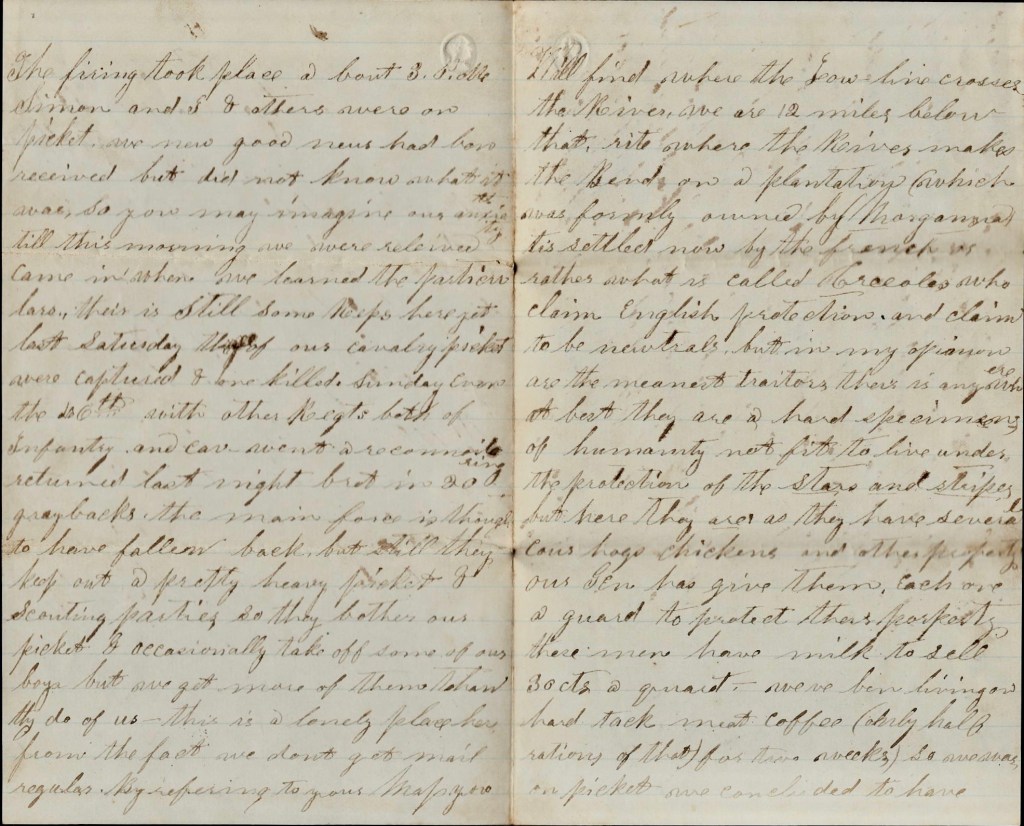 The firing took place a bout 3. O.clk
Simon and I & others were on
picket. we new good news had ben
received but did not know what it
was, so you may imagine our anxiety
till this morning we were releived
came in where we learned the particu
lars., their is Still Some Rebs here yet
last Saturday three of our cavalry picket
were captured & one killed. Sunday Even
the 26th with other Regts both of
Infantry and cav- went a reconnoitering
returned last night brot in 20
graybacks. the main force is though
to have fallen back, but still they
keep out a pretty heavy picket &
Scouting parties so they bother our
picket & occasionally take off some of our
boys but we get more of them than
thy do of us – this is a lonely place here
from the fact we dont get mail
regular. By refering to your Map you
will find where the Iow-line crosses
the River, we are 12 miles below
that, rite where the River makes
the Bend on a plantation (which
was formly owned by Morganza)
tis settled now by the french or
rather what is called Creeoles who
claim English protection. and claim
to be newtrals. but in my opinyon
are the meanest traitors theis is any where
at best they are a hard specimens
of humanity not fit to live under
the protection of the stars and stripes
but here they are, as they have several
cows hogs chickens and other property
our Gen has give them, Each one
a guard to protect their porperty,
these men have milk to sell
30 cts a quart. – weve ben living on
hard tack meat coffee (only half
rations of that) for two weeks) so we was,
on picket we concluded to have